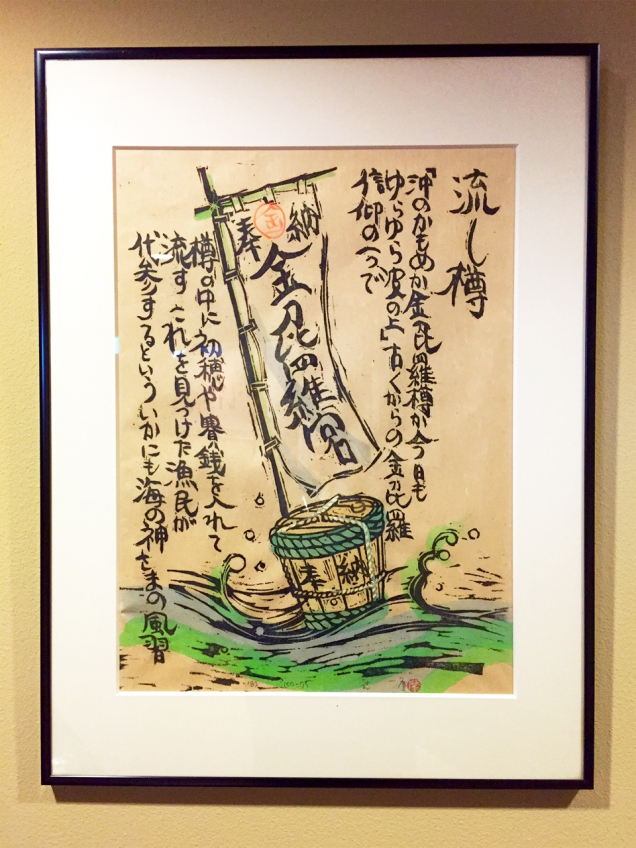 流し樽
「沖のかもめか金刀比羅樽か今日も
ゆらゆら波の上」古くからの金刀比羅
信仰の一つで
奉納
金
金刀比羅宮
樽の中に初穂や賽銭を入れて
流す これを見つけた漁民が
代参するといういかにも海の神さまの風習
奉納